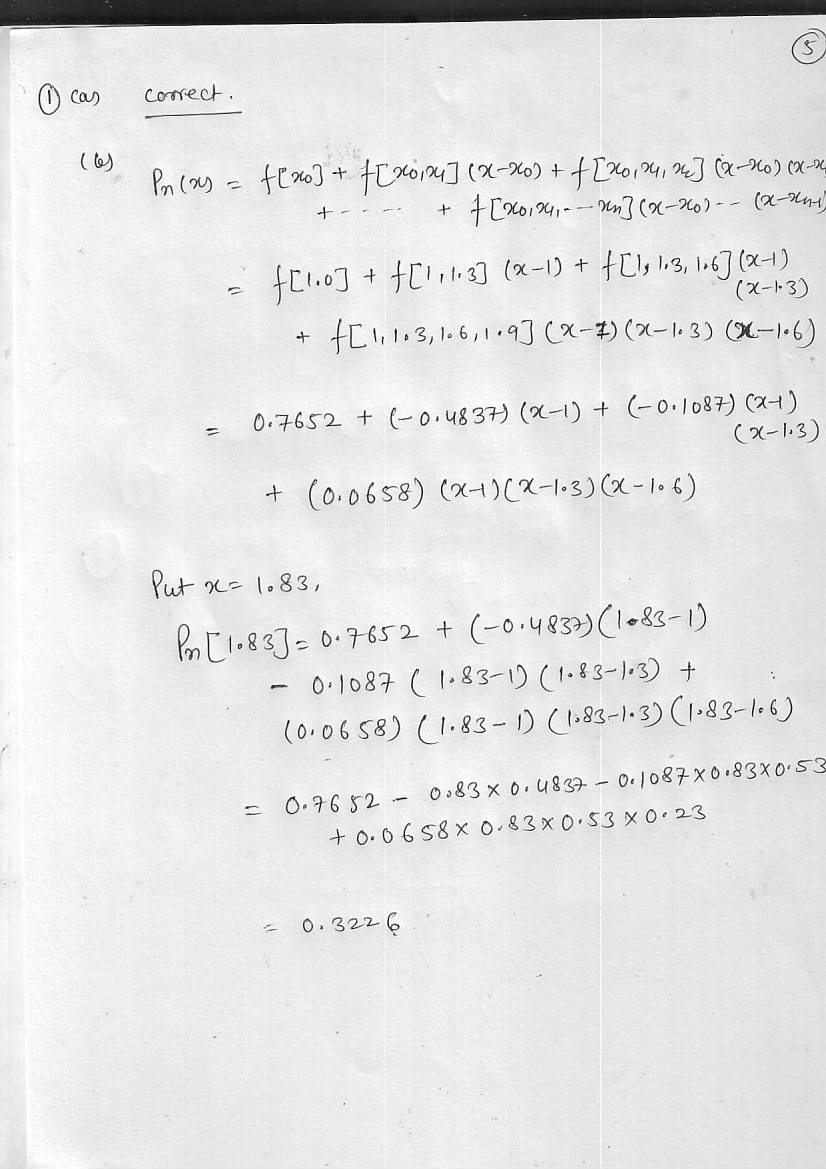 5
① (a) correct.
(b) Pn(x) = f[x0] + f[x0,x1] (x-x0) + f[x0,x1,x2] (x-x0) (x-x
+ - - - - + f[x0,x1,- - xn](x-x0)-- (x-xn-1)
= f[1.0] + f[1,1.3] (x-1) + f[1,1.3,1.6](x-1)
(x-1.3)
+ f[1,1.3,1.6,1.9] (x-1) (x-1.3) (x-1.6)
= 0.7652 + (-0.4837) (x-1) + (-0.1087) (x-1)
(x-1.3)
+ (0.0658) (x-1)(x-1.3)(x-1.6)
Put x= 1.83,
Pn[1.83]= 0.7652 + (-0.4837)(1.83-1)
- 0.1087 (1.83-1) (1.83-1.3) +
(0.0658) (1.83-1) (1.83-1.3) (1.83-1.6)
= 0.7652 - 0.83 x 0.4837 - 0.1087 x 0.83 x 0.53
+ 0.0658 x 0.83 x 0.53 x 0.23
= 0.3226